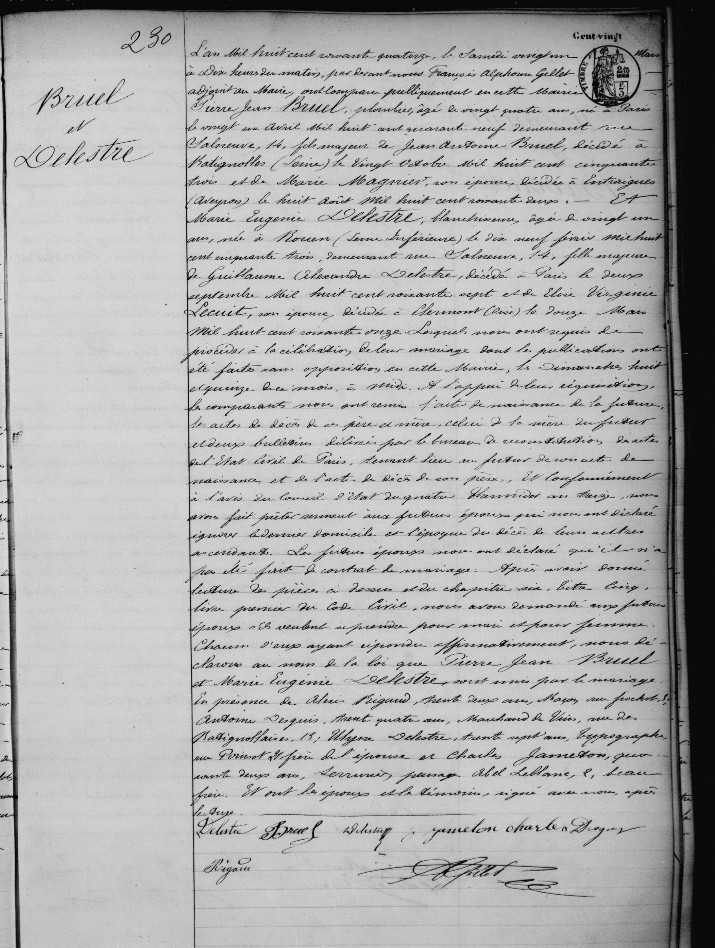 230
Cent-vingt
Bruel
et
Delestre
L'an Mil huit cent soixante quatorze, le Samedi vingt un Mars
à Dix heures du matin, par devant nous François Alphonse Gillet
adjoint au Maire, ont comparu publiquement en cette Mairie
Pierre Jean Bruel, plombier, âgé de vingt quatre ans, né à Paris
le vingt un Avril Mil huit cent quarante neuf demeurant rue
Salneuve, 14, fils majeur de Jean Antoine Bruel, décédé à
Batignolles (Seine) le Vingt Octobre Mil huit cent cinquante
trois et de Marie Magnier, son épouse, décédée à Entraigues
(Aveyron) le huit Août Mil huit cent soixante deux. — Et
Marie Eugenie Delestre, blanchisseuse, âgée de vingt un
ans, née à Rouen (Seine Inférieure) le dix neuf février Mil huit
cent cinquante trois, demeurant rue Salneuve, 14, fille majeure
de Guillaume Alexandre Delestre, décédé à Paris le deux
septembre Mil huit cent soixante sept et de Elise Virginie
Lecuit, son épouse, décédée à Clermont (Oise) le douze Mars
Mil huit cent soixante onze. Lesquels nous ont requis de
procéder à la célébration de leur mariage dont les publications ont
été faites sans opposition en cette Mairie, les Dimanches huit
et quinze de ce mois, à midi. A l'appui de leur réquisition,
les comparants nous ont remis l'acte de naissance de la future,
les actes de décès de ses père et mère, celui de la mère du futur
et deux bulletins délivrés par le bureau de reconstitution des actes
de l'Etat Civil de Paris, tenant lieu au futur de son acte de
naissance et de l'acte de décès de son père. Et conformément
à l'avis du Conseil d'Etat du quatre Thermidor an treize, nous
avons fait prêter serment aux futurs époux qui nous ont déclaré
ignorer le dernier domicile et l'époque du décès de leurs autres
ascendants. Les futurs époux nous ont déclaré qu'il n'a
pas été fait de contrat de mariage. Après avoir donné
lecture des pièces ci dessus et du chapitre six, titre cinq,
livre premier du Code Civil, nous avons demandé aux futurs
époux s'ils veulent se prendre pour mari et pour femme.
Chacun d'eux ayant répondu affirmativement, nous dé-
clarons au nom de la loi que Pierre Jean Bruel
et Marie Eugénie Delestre sont unis par le mariage.
En présence de Alexis Rigaud, trente deux ans, Maçon, rue
Antoine Desguis, trente quatre ans, Marchand de Vins, rue des
Batignollaises, 18; Ulysse Delestre, trente sept ans, typographe
rue frère de l'épouse et Charles Jameton, qua-
rante deux ans, serrurier, passage Abel Leblanc, 2, beau
frère. Et ont les époux et les témoins, signé avec nous, après
lecture.
Delestre Bruel Delestre jameton charles
Rigaud
AGillet